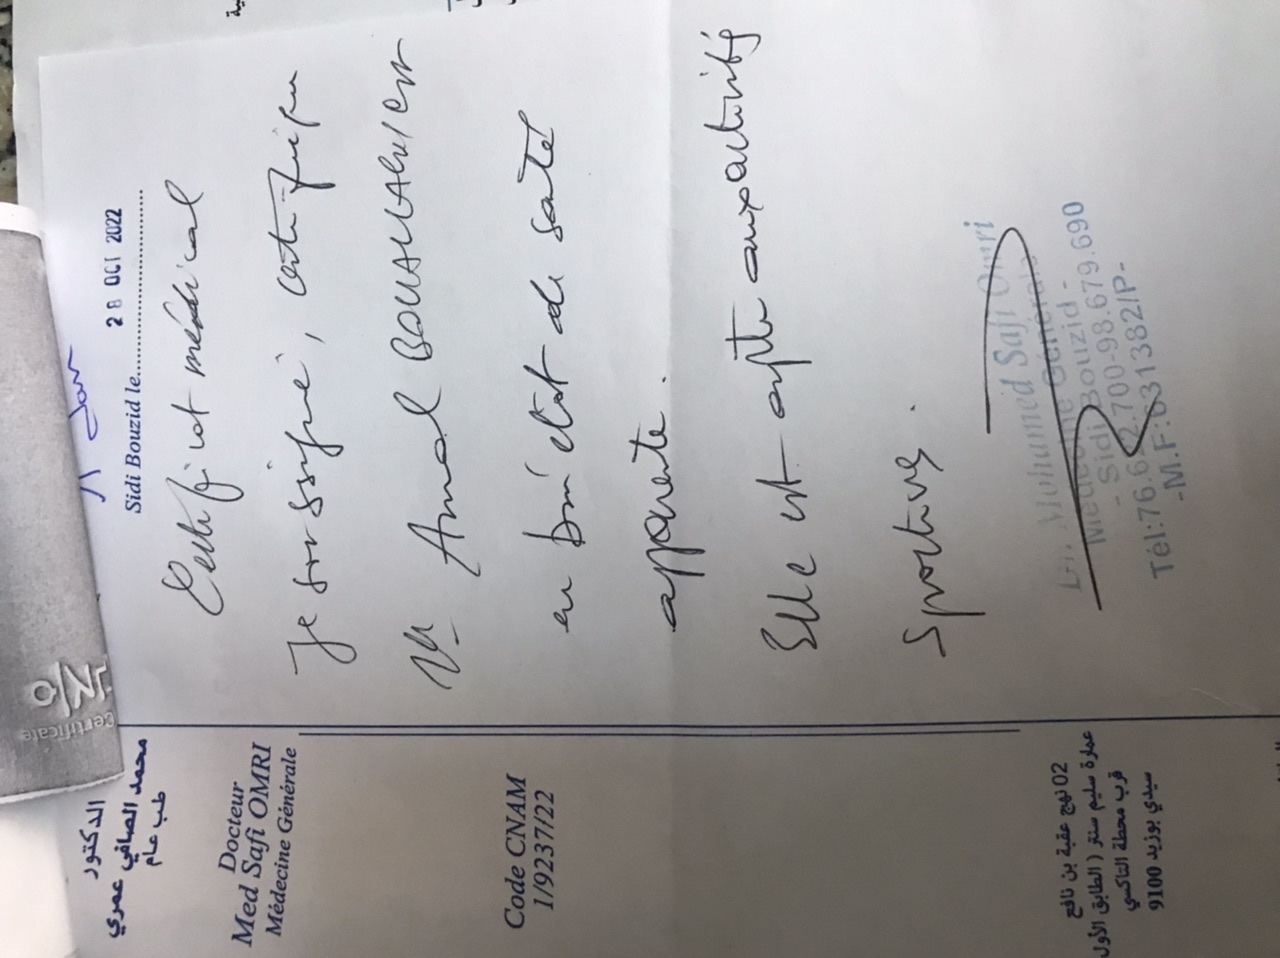 الدكتور
محمد الصافي عمري
طب عام
Docteur
Med Safi OMRI
Médecine Générale
Code CNAM
1/9237/22
02 نهج عقبة بن نافع
عمارة سليم سنتر ( الطابق الأول
قرب محطة التاكسي
سيدي بوزيد 9100
Certificate
Sidi Bouzid le..................
28 OCT 2022
Certificat médical
Je soussigné, certifie que
Amal
en bon état de santé
apparente.
Elle est apte aux activités
sportives.
Dr. Mohamed Safi Omri
Médecine Générale
- Sidi Bouzid -
700-98.679.690
-M.F:631382/P-